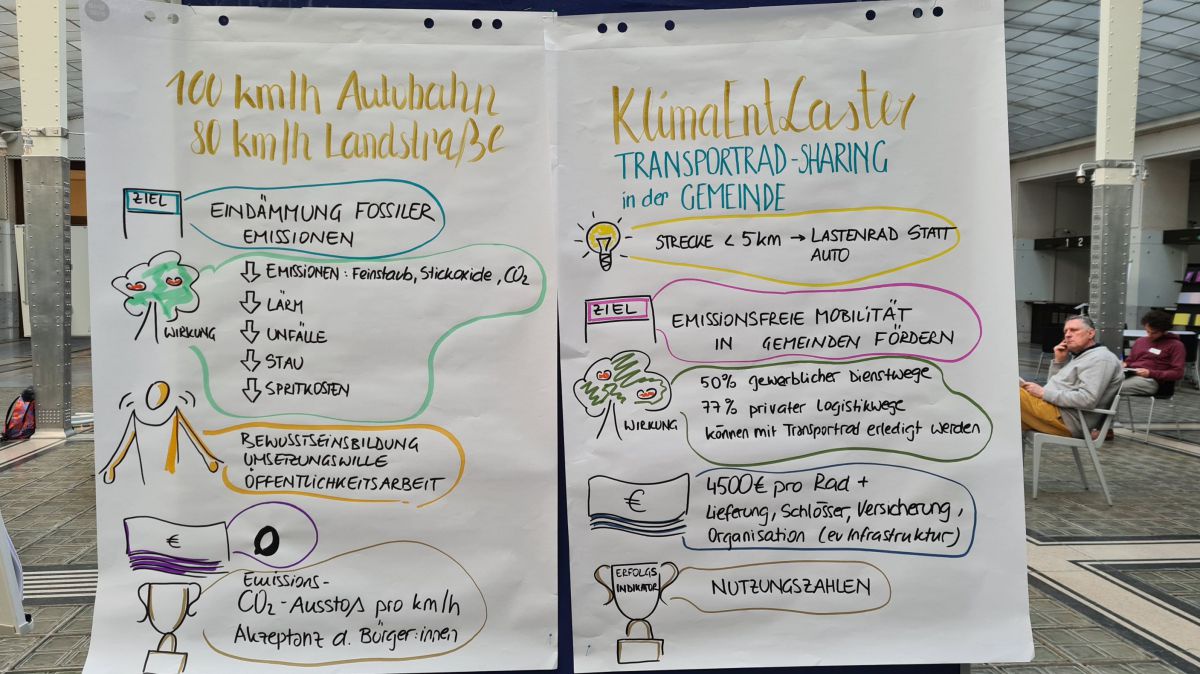 100 km/h Autobahn
80 km/h Landstraße
ZIEL
EINDÄMMUNG FOSSILER
EMISSIONEN
EMISSIONEN: Feinstaub, Stickoxide, CO2
LÄRM
WIRKUNG
UNFÄLLE
STAU
SPRITKOSTEN
BEWUSSTSEINSBILDUNG
UMSETZUNGSWILLE
ÖFFENTLICHKEITSARBEIT
€
0
Emissions-
CO2-Ausstoß pro km/h
Akzeptanz d. Bürger:innen
KlimaEntLaster
TRANSPORTRAD-SHARING
in der GEMEINDE
STRECKE < 5 km → LASTENRAD STATT
AUTO
ZIEL
EMISSIONSFREIE MOBILITÄT
IN GEMEINDEN FÖRDERN
WIRKUNG
50% gewerblicher Dienstwege
77% privater Logistikwege
können mit Transportrad erledigt werden
€
4500€ pro Rad +
Lieferung, Schlösser, Versicherung,
Organisation (ev Infrastruktur)
ERFOLGS
INDIKATOR
NUTZUNGSZAHLEN
1 2